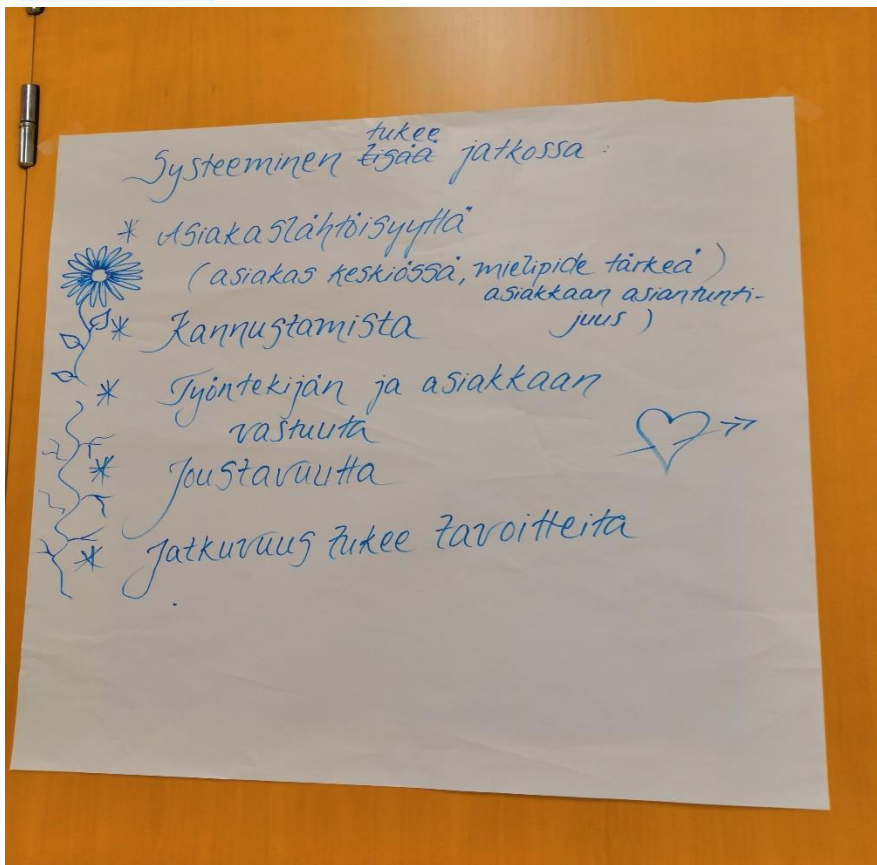 tukee
Systeeminen lisää jatkossa :
* Asiakaslähtöisyyttä
(asiakas keskiössä, mielipide tärkeä)
asiakkaan asiantunti-
juus)
* Kannustamista
* Työntekijän ja asiakkaan
vastuuta
* Joustavuutta
* Jatkuvuus tukee tavoitteita